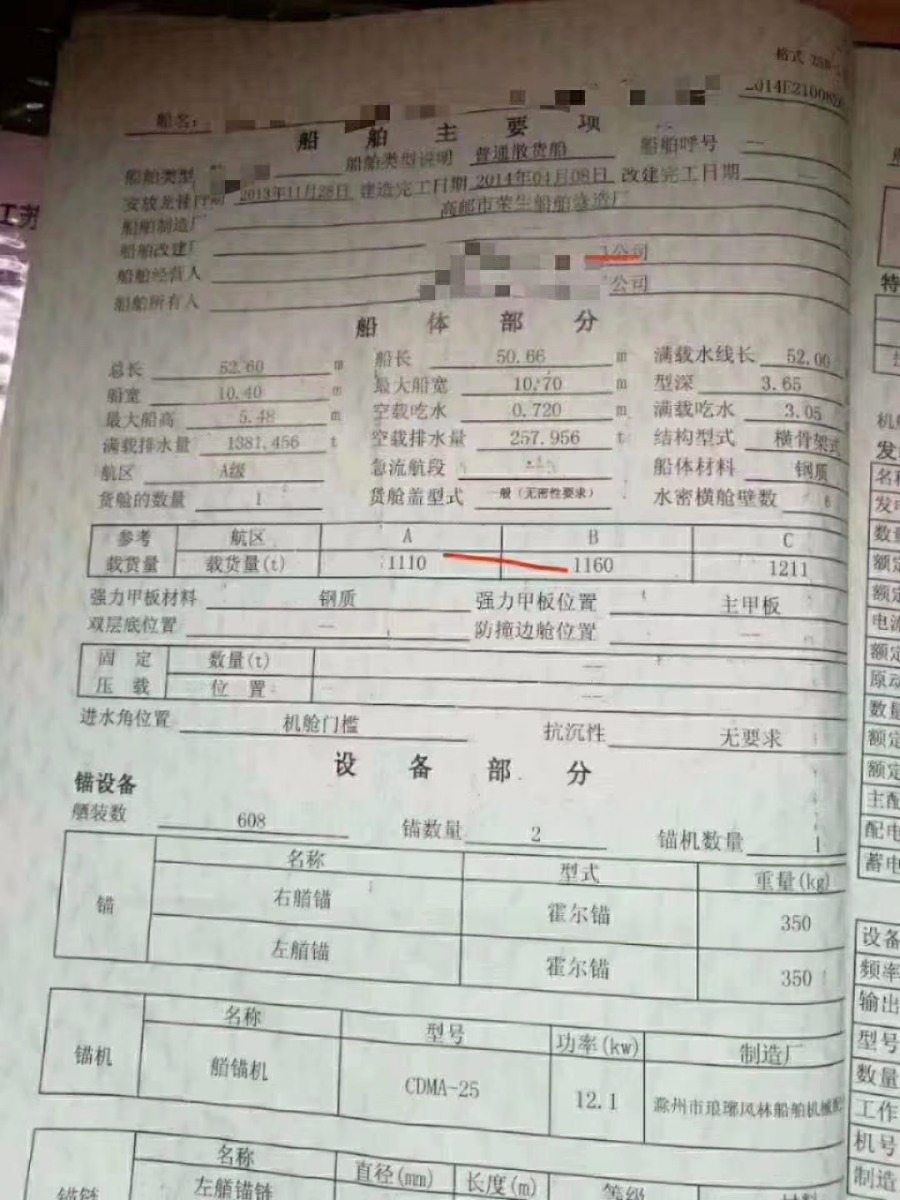 格式 25B-
船名：
2014E2100
船舶主要项
船舶类型 船舶类型说明 普通散货船 船舶呼号 —
安放龙骨日期 2013年11月28日 建造完工日期 2014年04月08日 改建完工日期
船舶制造厂 高邮市荣生船舶建造厂
船舶改建厂
船舶经营人 公司
船舶所有人 公司
船体部分
总长 52.60 m 船长 50.66 m 满载水线长 52.00
船宽 10.40 m 最大船宽 10.70 m 型深 3.65
最大船高 5.48 m 空载吃水 0.720 m 满载吃水 3.05
满载排水量 1381.456 t 空载排水量 257.956 t 结构型式 横骨架式
航区 A级 急流航段 — 船体材料 钢质
货舱的数量 1 货舱盖型式 一般（无密性要求） 水密横舱壁数 6
参考 航区 A B C
载货量 载货量(t) 1110 1160 1211
强力甲板材料 钢质 强力甲板位置 主甲板
双层底位置 — 防撞边舱位置 —
固定 数量(t) —
压载 位置 — —
进水角位置 机舱门槛 抗沉性 无要求
设备部分
锚设备
舾装数 608 锚数量 2 锚机数量 1
锚 名称 型式 重量(kg)
右艏锚 霍尔锚 350
左艏锚 霍尔锚 350
锚机 名称 型号 功率(kw) 制造厂
艏锚机 CDMA-25 12.1 滁州市琅琊风林船舶机械
锚链 名称 直径(mm) 长度(m) 等级
左艏锚链
江苏
特
机舱
名称
数量
额定
额定
电流
额定
原动
数量
额定
额定
主配
配电
蓄电
设备
频率
输出
型号
数量
工作
机号
制造